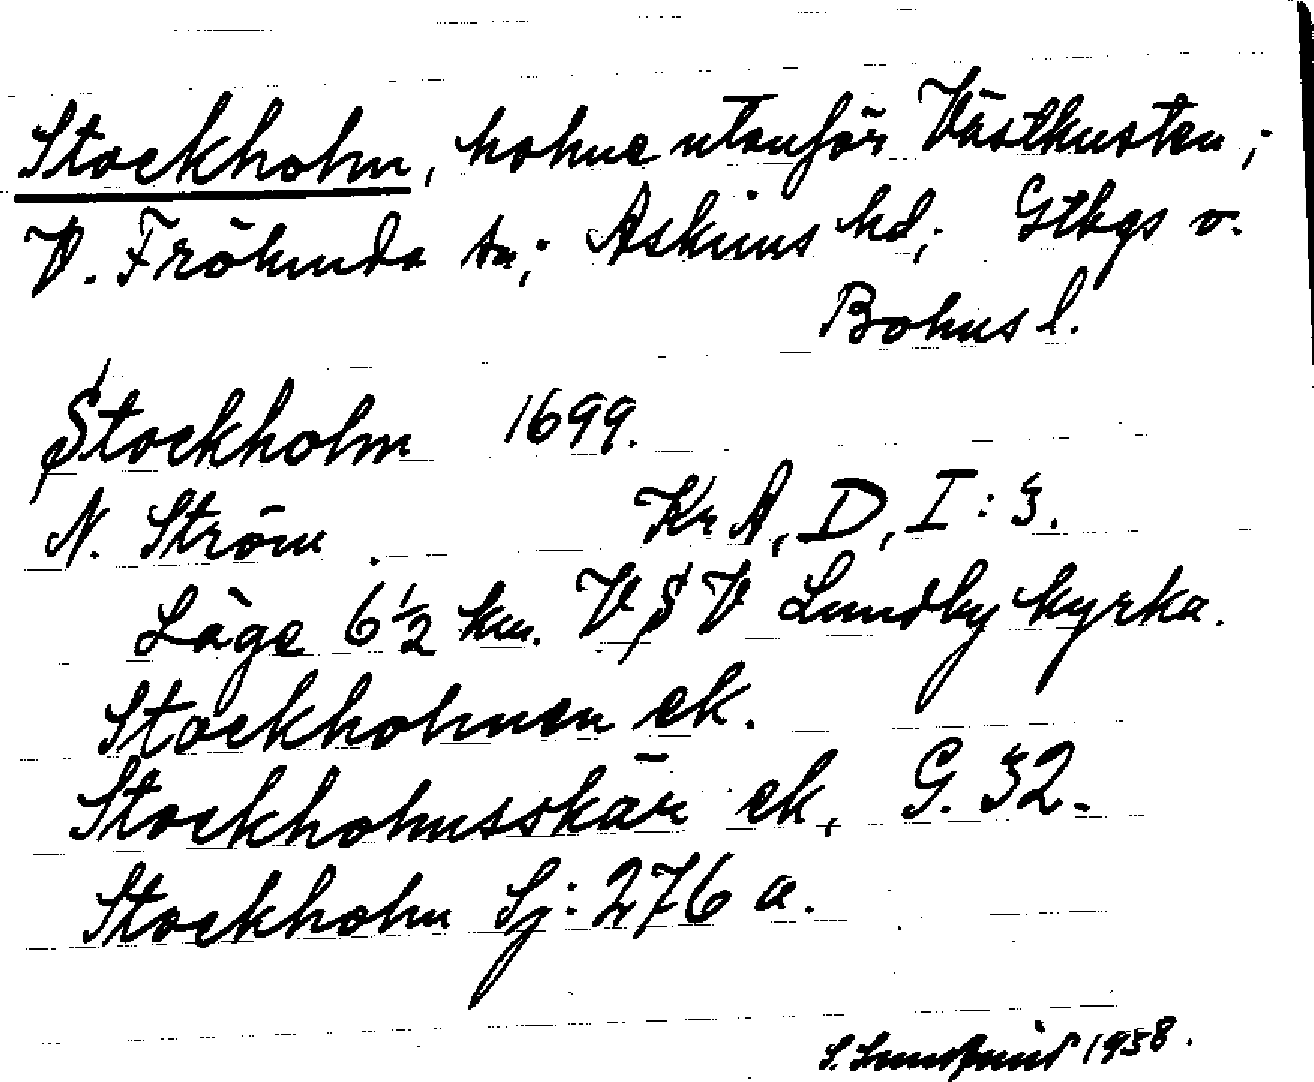 Stockholm, holme utanför Västkusten;
V. Frölunda sn; Askims hd; Gtbgs o.
Bohus l.
Stockholm 1699.
N. Ström. KrA, D, I: 3.
Läge 6½ km. V S V Lundby kyrka.
Stockholmen ek.
Stockholmsskär ek. G. 32.
Stockholm Sj: 276 a.
S. Lundquist 1938.